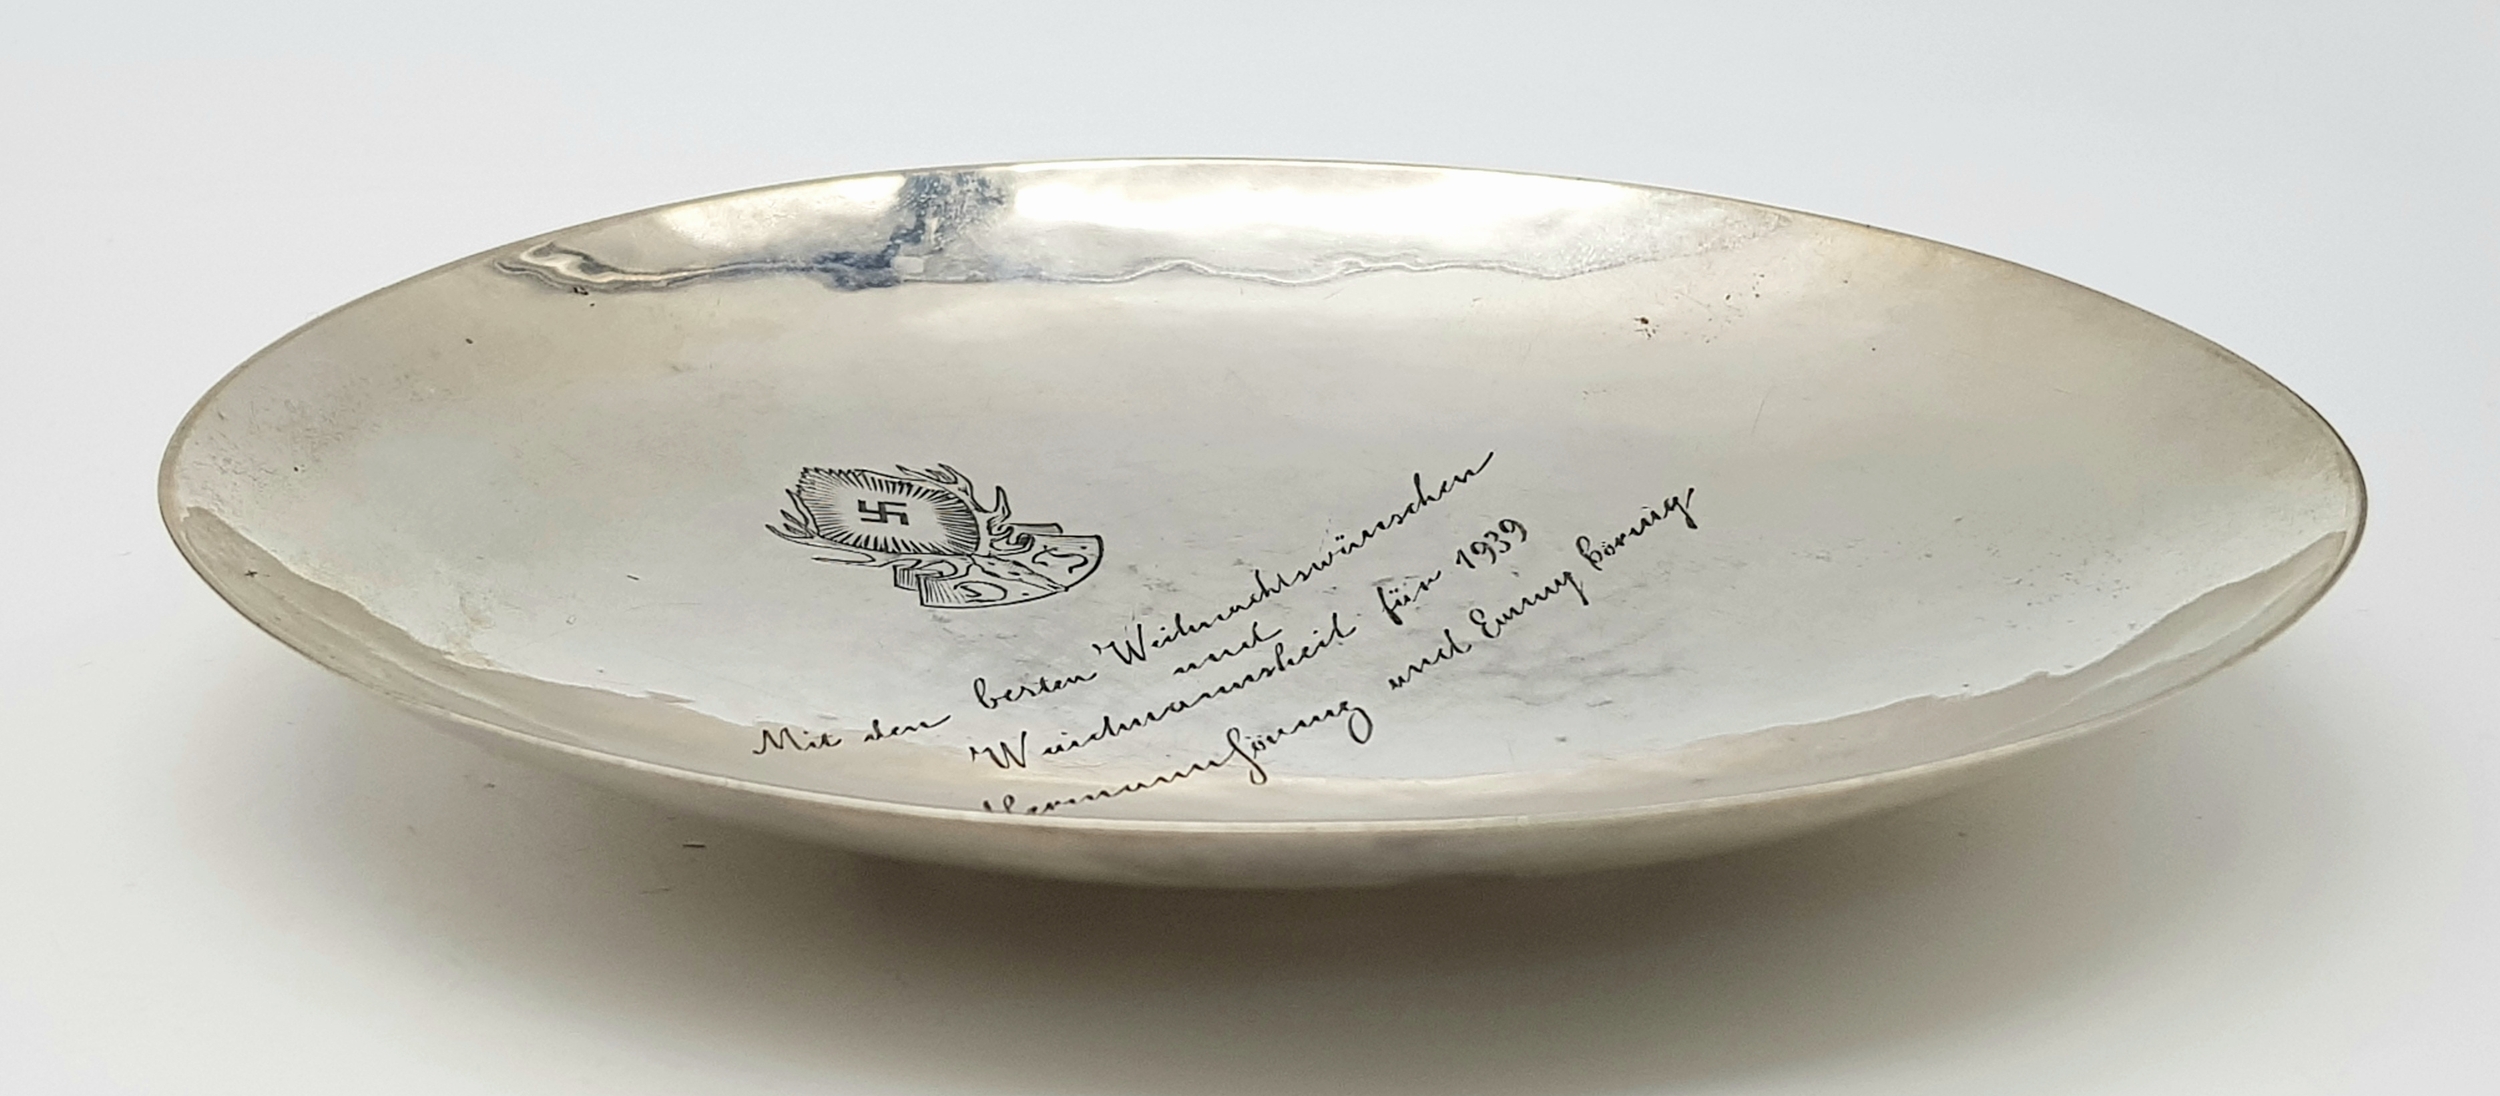 D J
Mit den besten Weihnachtswünschen
und
Weidmannsheil für 1939
Hermann Göring und Emmy Göring